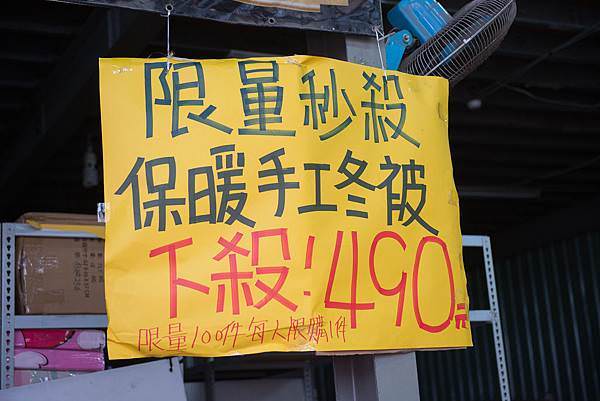 限量秒殺
保暖手工冬被
下殺!490元
限量100件每人限購1件